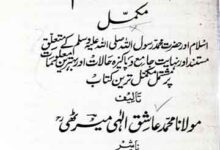 مکمل
اسلام اور حضرت محمد رسول اللہ صلی اللہ علیہ وسلم کے متعلق
مستند اور نہایت جامع و پاکیزہ حالات اور بہترین معلومات
پر مشتمل مکمل ترین کتاب
تالیف
مولانا محمد عاشق الٰہی میرٹھی رح
ناشر